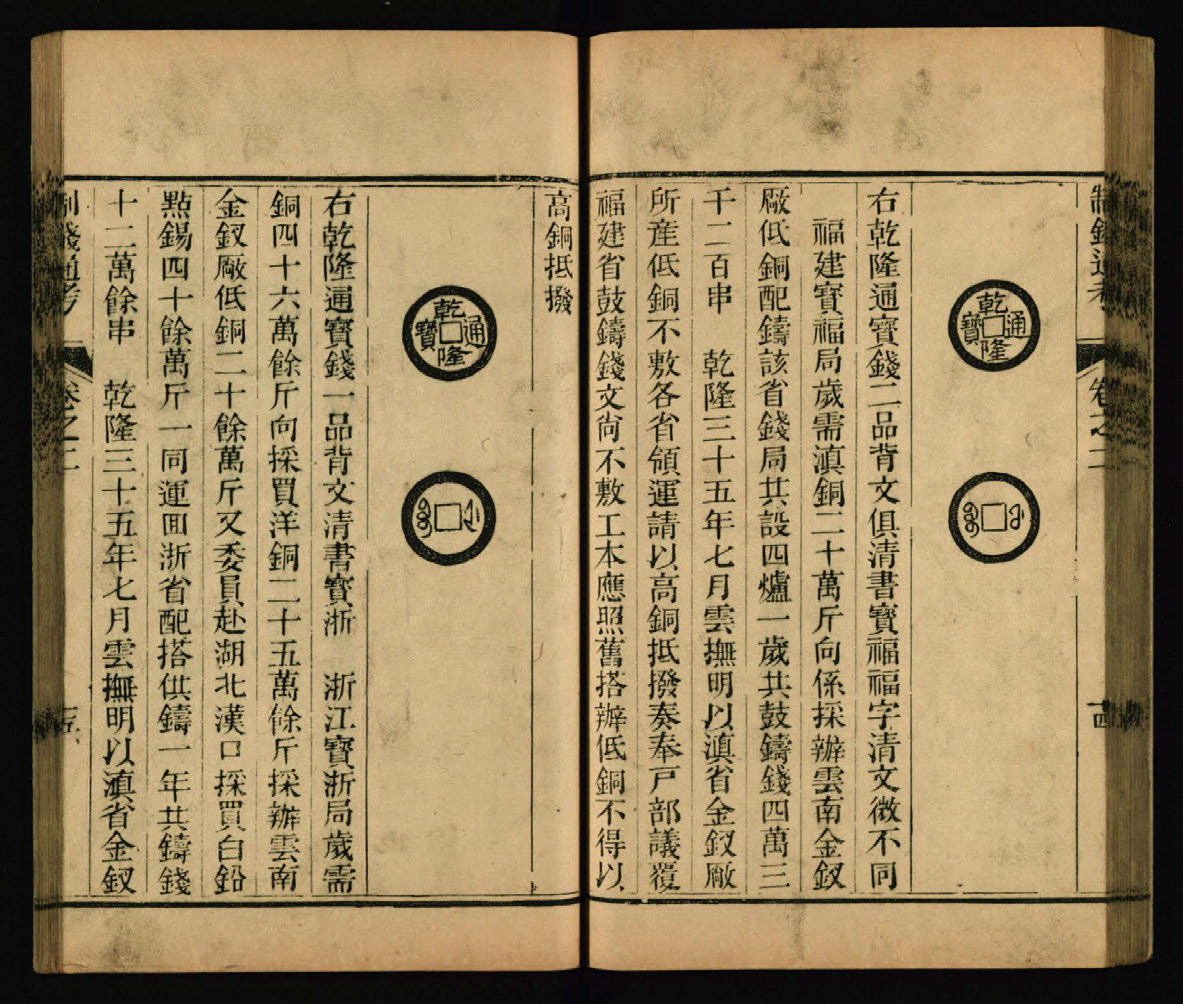 制錢通考
卷之二
十四
乾隆通寶
右乾隆通寶錢二品背文俱清書寶福福字清文微不同
福建寶福局歲需滇銅二十萬斤向係採辦雲南金釵
廠低銅配鑄該省錢局共設四爐一歲共鼓鑄錢四萬三
千二百串 乾隆三十五年七月雲撫明以滇省金釵廠
所產低銅不敷各省領運請以高銅抵撥奏奉戸部議覆
福建省鼓鑄錢文尙不敷工本應照舊搭辦低銅不得以
高銅抵撥
乾隆通寶
右乾隆通寶錢一品背文清書寶浙 浙江寶浙局歲需
銅四十六萬餘斤向採買洋銅二十五萬餘斤採辦雲南
金釵廠低銅二十餘萬斤又委員赴湖北漢口採買白鉛
點錫四十餘萬斤一同運囬浙省配搭供鑄一年共鑄錢
十二萬餘串 乾隆三十五年七月雲撫明以滇省金釵
制錢通考
卷之二